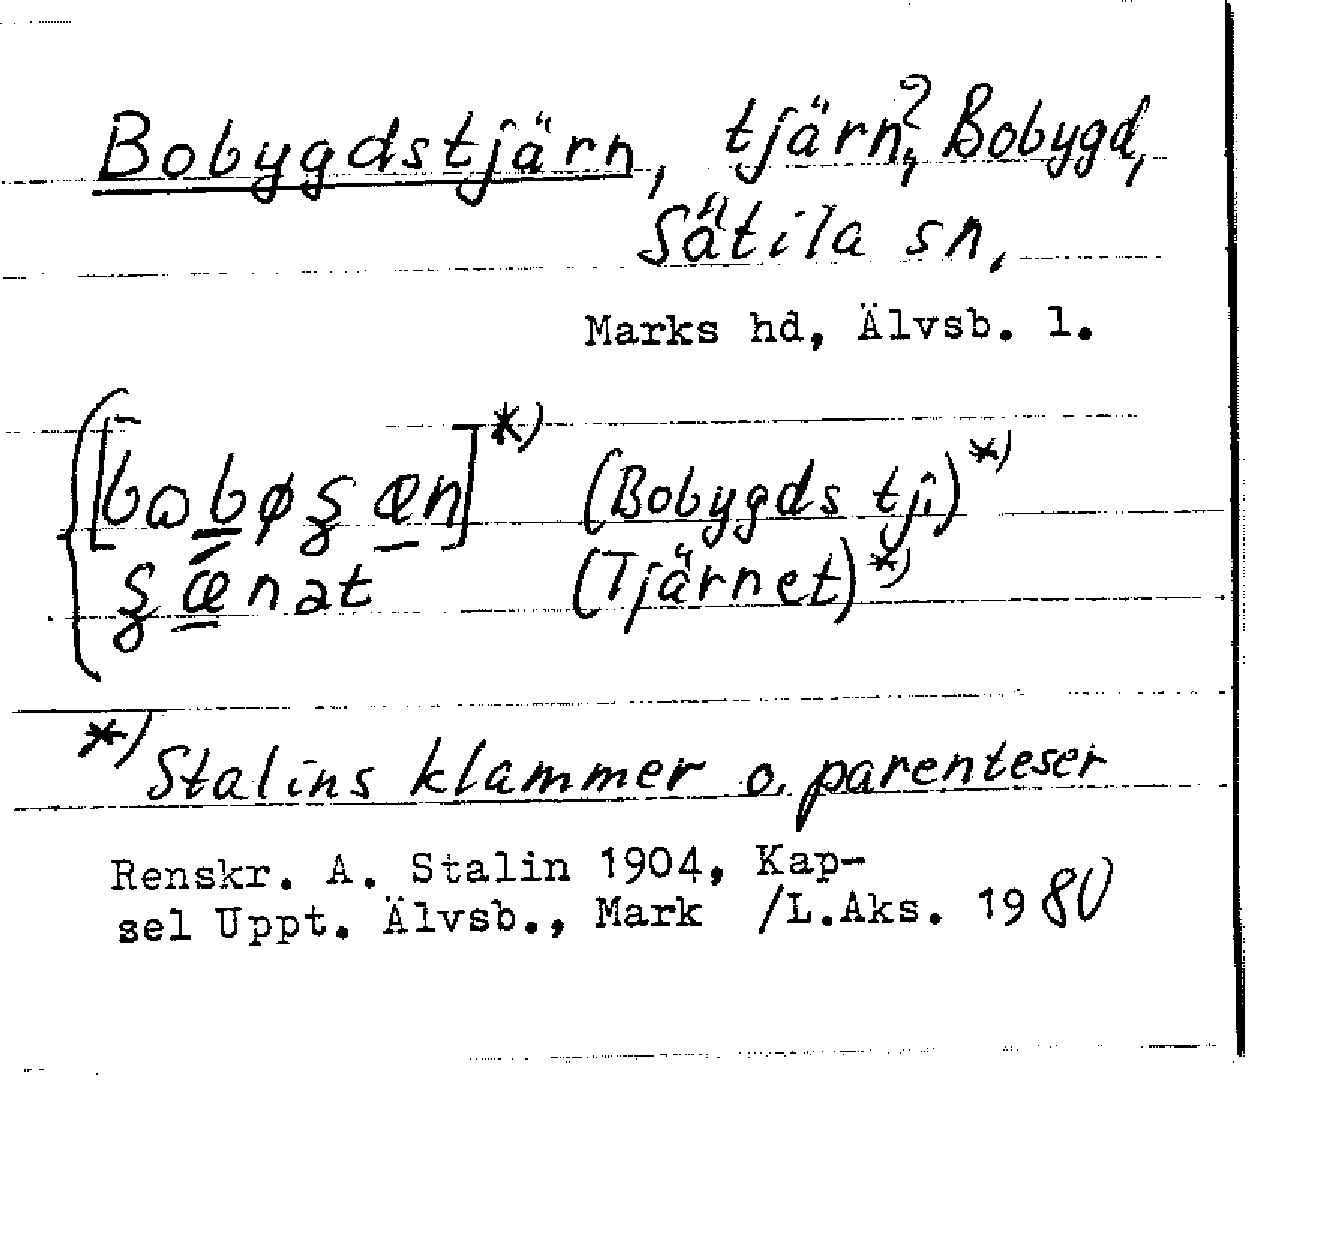 Bobygdstjärn, tjärn?, Bobygd,
Sätila sn,
Marks hd, Älvsb. l.
(Bobygds tj.)*)
(Tjärnet)*)
*) Stalins klammer o. parenteser
Renskr. A. Stalin 1904, Kap-
sel Uppt. Älvsb., Mark /L.Aks. 1980